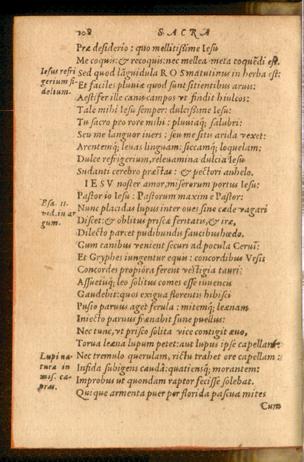 108 SACRA
Præ desiderio: quo mellitissime Iesu
Me coquis: & recoquis: nec mellea meta
Iesus refri
gerium fi-
delium.
Sed quod lãguidula ROS matutinus in herba est:
Et faciles pluuiæ quod sunt sitientibus aruis:
Aestifer ille canis campos vt findit hiulcos:
Tale mihi Iesu semper: dulcissime Iesu:
Tu sacro pro rore mihi: pluuiaq; salubri:
Seu me languor
Arentemq; leuas linguam: siccamq; loquelam:
Dulce refrigerium, releuamina dulcia Iesu
Sudanti cerebro præstas: & pectori anhelo.
IESV noster amor, miserorum portus Iesu:
Pastor io Iesu: Pastorum maxime Pastor:
Nunc placidas lupus inter oues sine cæde vagari
Discet: & oblitus priscæ feritatis, & iræ,
Dilecto parcet pudibundus faucibus hœdo.
Cum canibus venient securi ad pocula Cerui:
Et Gryphes iungentur equis: concordibus Vrsis
Concordes propiora ferent vestigia tauri:
Assuetuq; leo solitus comes esse iuuencu
Gaudebit: quos exigua florentis hibisci
Pusio paruus aget ferula: mitemq; leænam
Iniecto paruus frænabit fune puellus:
Nec tunc, vt prisco solita vice contigit æuo,
Torua leæna lupum petet: aut lupus ipse capellam:
Lupi na-
tura in
Nec tremulo querulam, rictu trahet ore capellam:
Insida subigens caudã: quatiensq; morantem:
Improbus ut quondam raptor fecisse solebat.
Quiq; armenta puer per florida pascua mites
Cum